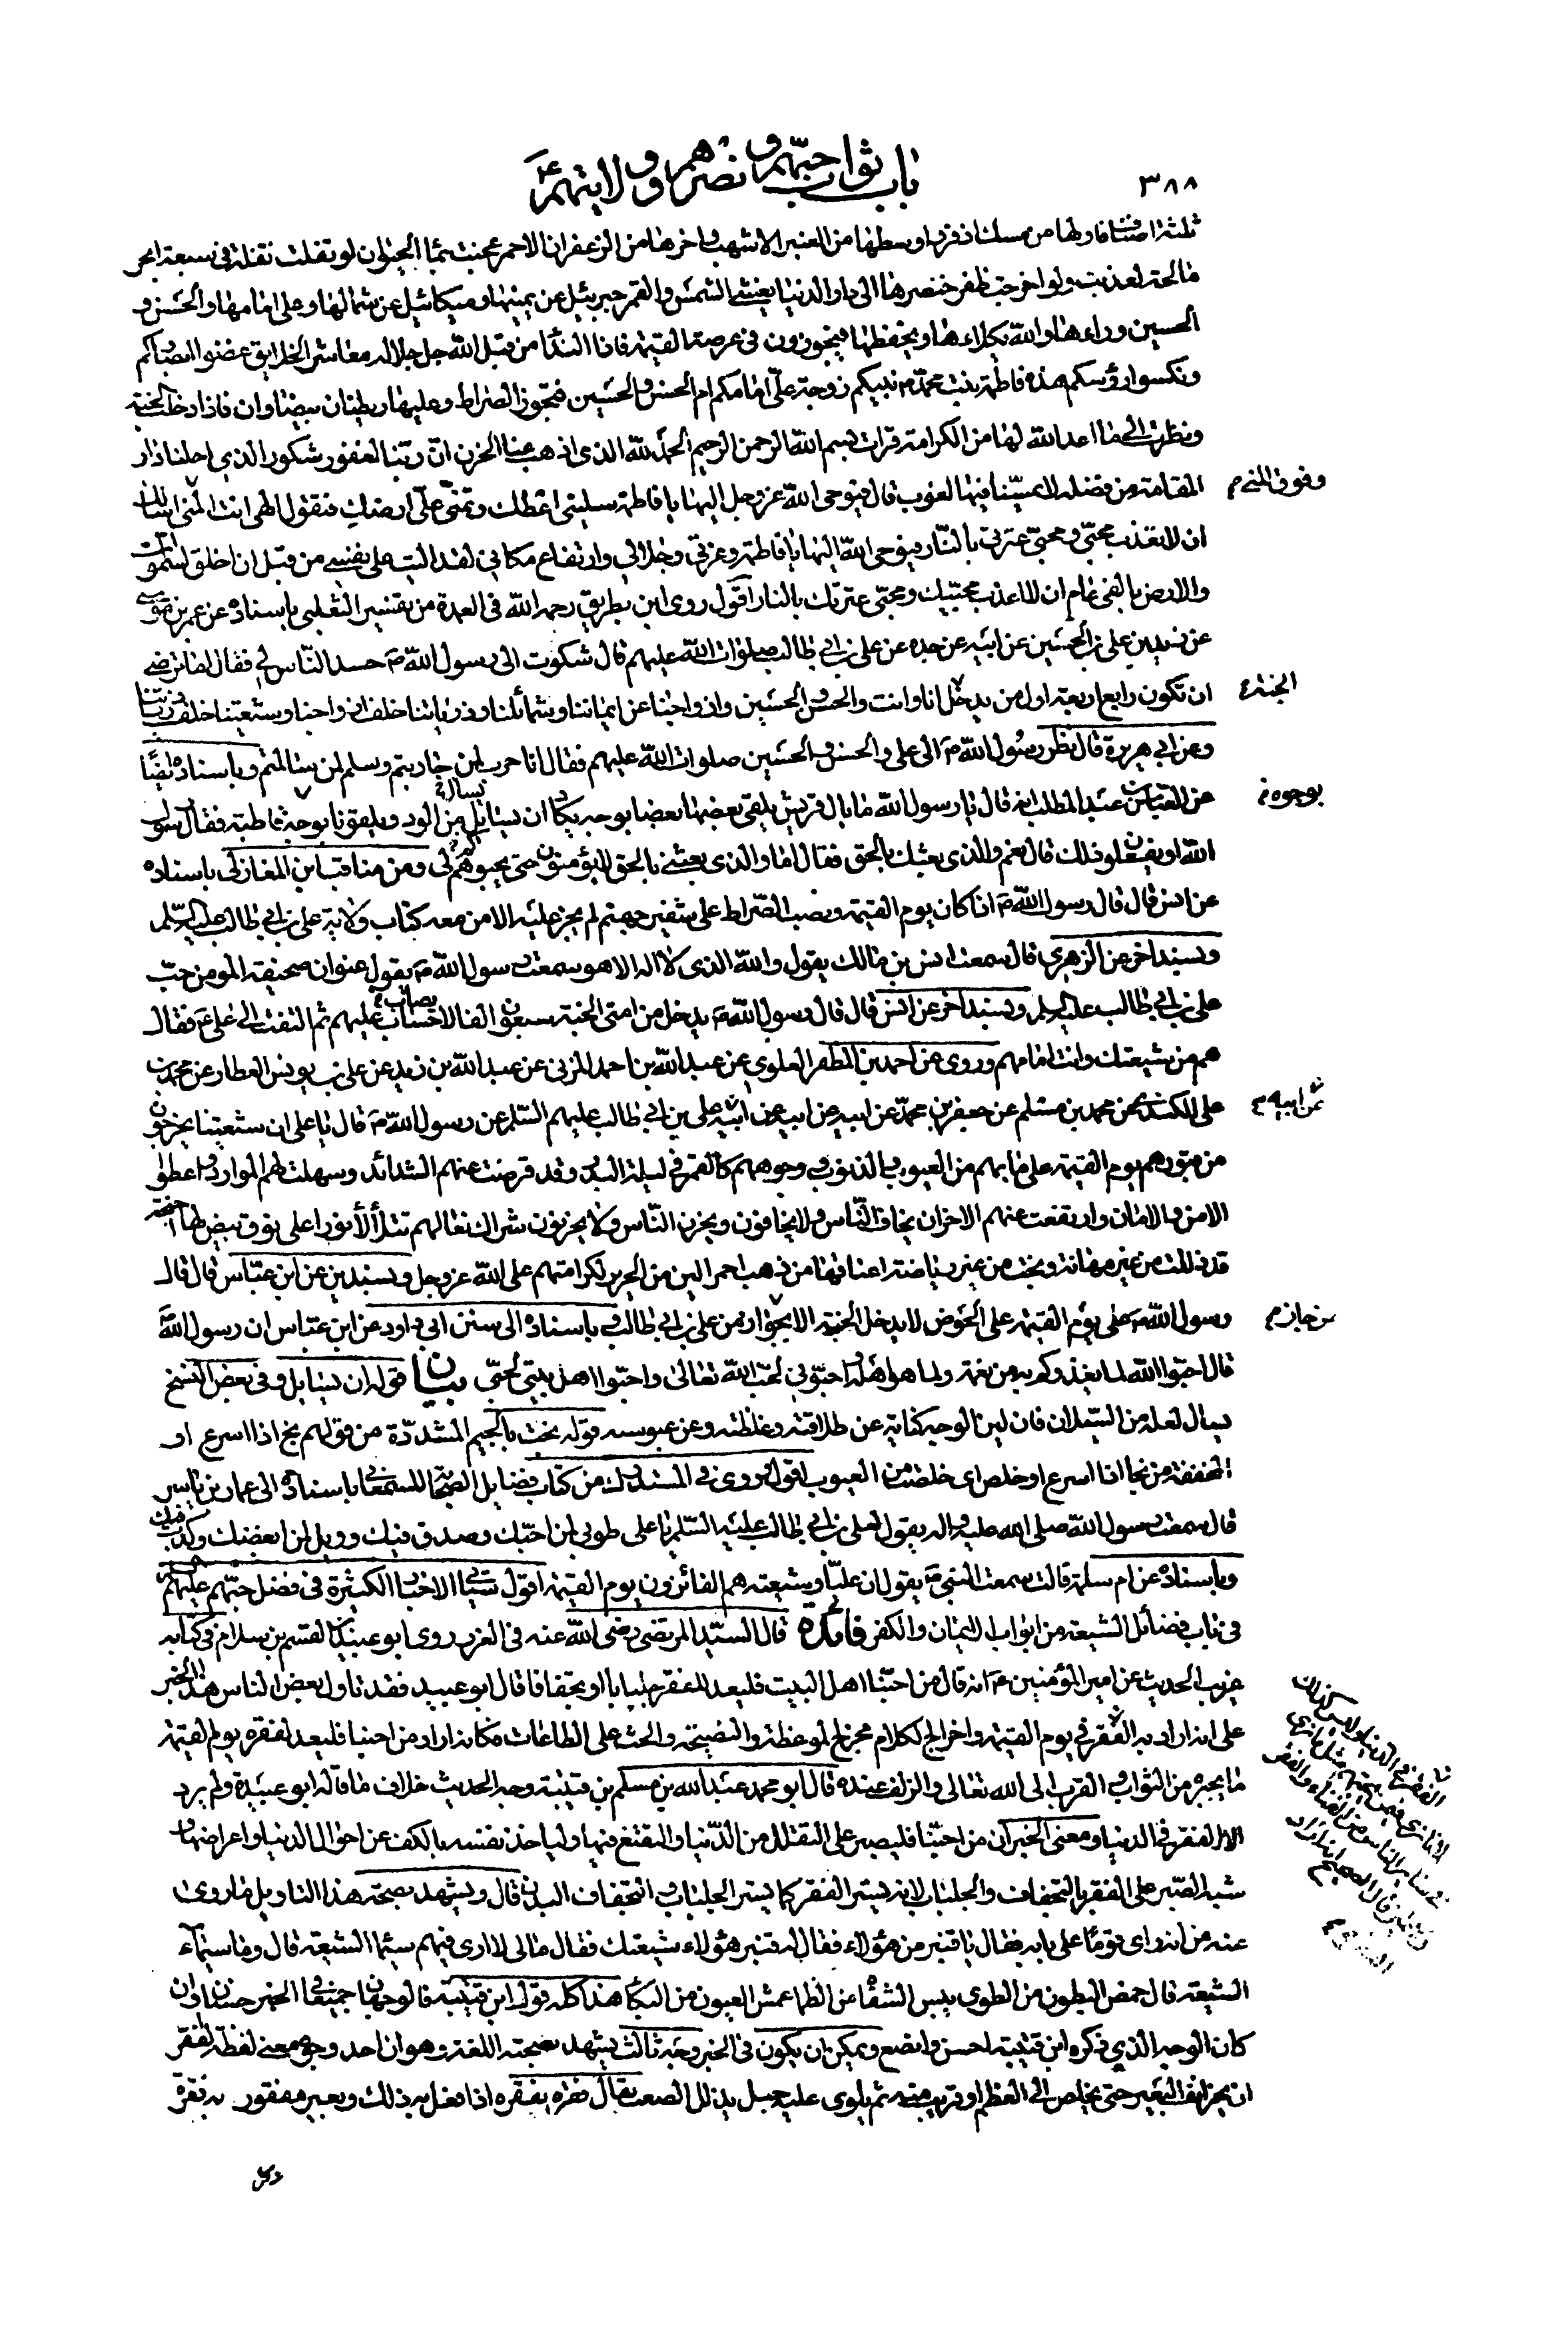 ٣٨٨
باب ثواب حبّهم و نصرهم و ولايتهم ع
ثلثة اصناف فاولها من مسك اذفر و اوسطها من العنبر الاشهب و اخرها من الزعفران الاحمر عجنت بماء الحيوان لو تفلت تفلة في سبعة ابحر
مالحة لعذبت ولو اخرجت ظفر خنصرها الى دار الدنيا يغشى الشمس والقمر جبرئيل عن يمينها و ميكائيل عن شمالها و على امامها والحسن و
الحسين وراءها والله يكلاءها و يحفظها فيجوزون في عرصة القيمة فاذا النداء من قبل الله جل جلاله معاشر الخلايق غضوا ابصاركم
ونكسوا رؤسكم هذه فاطمة بنت محمد ص نبيكم زوجة علي امامكم ام الحسن والحسين فتجوز الصراط و عليها ريطتان بيضاوان فاذا دخلت الجنة
ونظرت الى ما اعد الله لها من الكرامة قرات بسم الله الرحمن الرحيم الحمد لله الذي اذهب عنا الحزن ان ربنا لغفور شكور الذي احلنا دار
المقامة من فضله لا يمسنا فيها لغوب قال فيوحى الله عز وجل اليها يا فاطمة سليني اعطك و تمني علي ارضك فتقول الهي انت المنى اسالك
وفوق المنى م
ان لا تعذب محبي و محبي عترتي بالنار فيوحى الله اليها يا فاطمة وعزتي وجلالي وارتفاع مكاني لقد اليت على نفسي من قبل ان اخلق السموات
والارض بالفي عام ان لا اعذب محبيك و محبي عترتك بالنار اقول روى ابن بطريق رحمه الله في العمدة من تفسير الثعلبي باسناده عن عمر بن موسى
عن زيد بن علي بن الحسين عن ابيه عن جده عن علي بن ابي طالب صلوات الله عليهم قال شكوت الى رسول الله ص حسد الناس لي فقال اما ترضى
ان تكون رابع اربعة اول من يدخل انا وانت والحسن والحسين وازواجنا عن ايماننا و شمائلنا و ذرياتنا خلف ازواجنا و شيعتنا خلف ذريتنا
الجنة ع
وعن ابي هريرة قال نظر رسول الله ص الى علي والحسن والحسين صلوات الله عليهم فقال انا حرب لمن حاربتم وسلم لمن سالمتم و باسناده ايضا
عن العباس بن عبد المطلب انه قال يا رسول الله ما بال قريش يلقى بعضها بعضا بوجه يكاد ان يسايل من الود و يلقونا بوجه قاطبة فقال رسول
يسال خ
بوجوه م
الله او يفعلون ذلك قال نعم والذي بعثك بالحق فقال اما والذي بعثني بالحق لا يؤمنون حتى يحبوهم لي ومن مناقب ابن المغازلي باسناده
عن انس قال قال رسول الله ص اذا كان يوم القيمة ونصب الصراط على شفير جهنم لم يجز عليه الا من معه كتاب ولاية علي بن ابي طالب عليه السلم
وبسند اخر عن الزهري قال سمعت انس بن مالك يقول والله الذي لا اله الا هو سمعت رسول الله ص يقول عنوان صحيفة المومن حب
علي بن ابي طالب عليه السلم وبسند اخر عن انس قال قال رسول الله ص يدخل من امتي الجنة سبعون الفا لا حساب عليهم ثم التفت الى علي ع فقال
هم من شيعتك وانت امامهم وروى عن احمد بن المظفر العلوي عن عبد الله بن احمد المزني عن عبد الله بن زيد عن علي بن يونس العطار عن محمد بن
علي الكندي عن محمد بن مسلم عن جعفر بن محمد عن ابيه عن ابيه عن ابيه علي بن ابي طالب عليهم السلم عن رسول الله ص قال يا علي ان شيعتنا يخرجون
عن ابيه م
من قبورهم يوم القيمة على ما بهم من العيوب والذنوب وجوههم كالقمر في ليلة البدر وقد فرجت عنهم الشدائد وسهلت لهم الموارد واعطوا
الامن والامان وارتفعت عنهم الاحزان يخاف الناس ولا يخافون و يحزن الناس ولا يحزنون شراك نعالهم تتلألأ نورا على نوق بيض لها اجنحة
قد ذللت من غير مهانة و نجت من غير رياضة اعناقها من ذهب احمر الين من الحرير لكرامتهم على الله عز وجل وبسندين عن ابن عباس قال قال
رسول الله ص علي يوم القيمة على الحوض لا يدخل الجنة الا بجواز من علي بن ابي طالب و باسناده الى سنن ابي داود عن ابن عباس ان رسول الله
من جاز م
قال احبوا الله لما يغذوكم به من نعمة ولما هو اهله و احبوني لحب الله تعالى واحبوا اهل بيتي لحبي بيان قوله ان يسايل وفي بعض النسخ
يسال لعله من السيلان فان لين الوجه كناية عن طلاقته وغلظته وعن عبوسه قوله نجت بالجيم المشددة من قولهم نج اذا اسرع او
المخففة من نجا اذا اسرع او خلص اى خلصت من العيوب اقول و روى في المستدرك من كتاب فضايل الصحابة للسمعاني باسناده الى عمار بن ياسر
قال سمعت رسول الله صلى الله عليه واله يقول لعلي بن ابي طالب عليه السلم يا علي طوبى لمن احبك وصدق فيك و ويل لمن ابغضك وكذب فيك
وباسناده عن ام سلمة قالت سمعت النبي ص يقول ان عليا وشيعته هم الفائزون يوم القيمة اقول سياتي الاخبار الكثيرة في فضل حبهم عليهم
في باب فضائل الشيعة من ابواب الايمان والكفر فائدة قال السيد المرتضى رضى الله عنه في الغرر روى ابو عبيد القسم بن سلام في كتابه
غريب الحديث عن امير المؤمنين ع انه قال من احبنا اهل البيت فليعد للفقر جلبابا او تجفافا قال ابو عبيد فقد تاول بعض الناس هذا الخبر
على انه اراد به الفقر في يوم القيمة واخراج الكلام مخرج الموعظة والنصيحة والحث على الطاعات فكانه اراد من احبنا فليعد لفقره يوم القيمة
ما يجبره من الثواب والقرب الى الله تعالى والزلف عنده قال ابو محمد عبد الله بن مسلم بن قتيبة وجه الحديث خلاف ما قاله ابو عبيدة ولم يرد
الا الفقر في الدنيا ومعنى الخبر ان من احبنا فليصبر على التقلل من الدنيا والتقنع فيها ولياخذ نفسه بالكف عن احوال الدنيا واعراضها و
شبه الصبر على الفقر بالتجفاف والجلباب لانه يستر الفقر كما يستر الجلباب و التجفاف البدن قال ويشهد بصحة هذا التاويل ما روى
عنه من انه راى قوما على بابه فقال يا قنبر من هؤلاء فقال له قنبر هؤلاء شيعتك فقال مالى لا ارى فيهم سيماء الشيعة قال وما سيماء
الشيعة قال خمص البطون من الطوى يبس الشفاه عن الظما عمش العيون من البكاء هذا كله قول ابن قتيبة فالوجهان جميعا في الخبر حسنان وان
كان الوجه الذي ذكره ابن قتيبة احسن وانصع ويمكن ان يكون في الخبر وجه ثالث يشهد بصحته اللغة وهو ان احد وجوه معنى لفظة الفقر
ان يحز انف البعير حتى يخلص الى العظم او قريب منه ثم يلوى عليه حبل يذلل الصعب يقال فقره يفقره اذا فعل به ذلك وبعير مفقور به فقرة